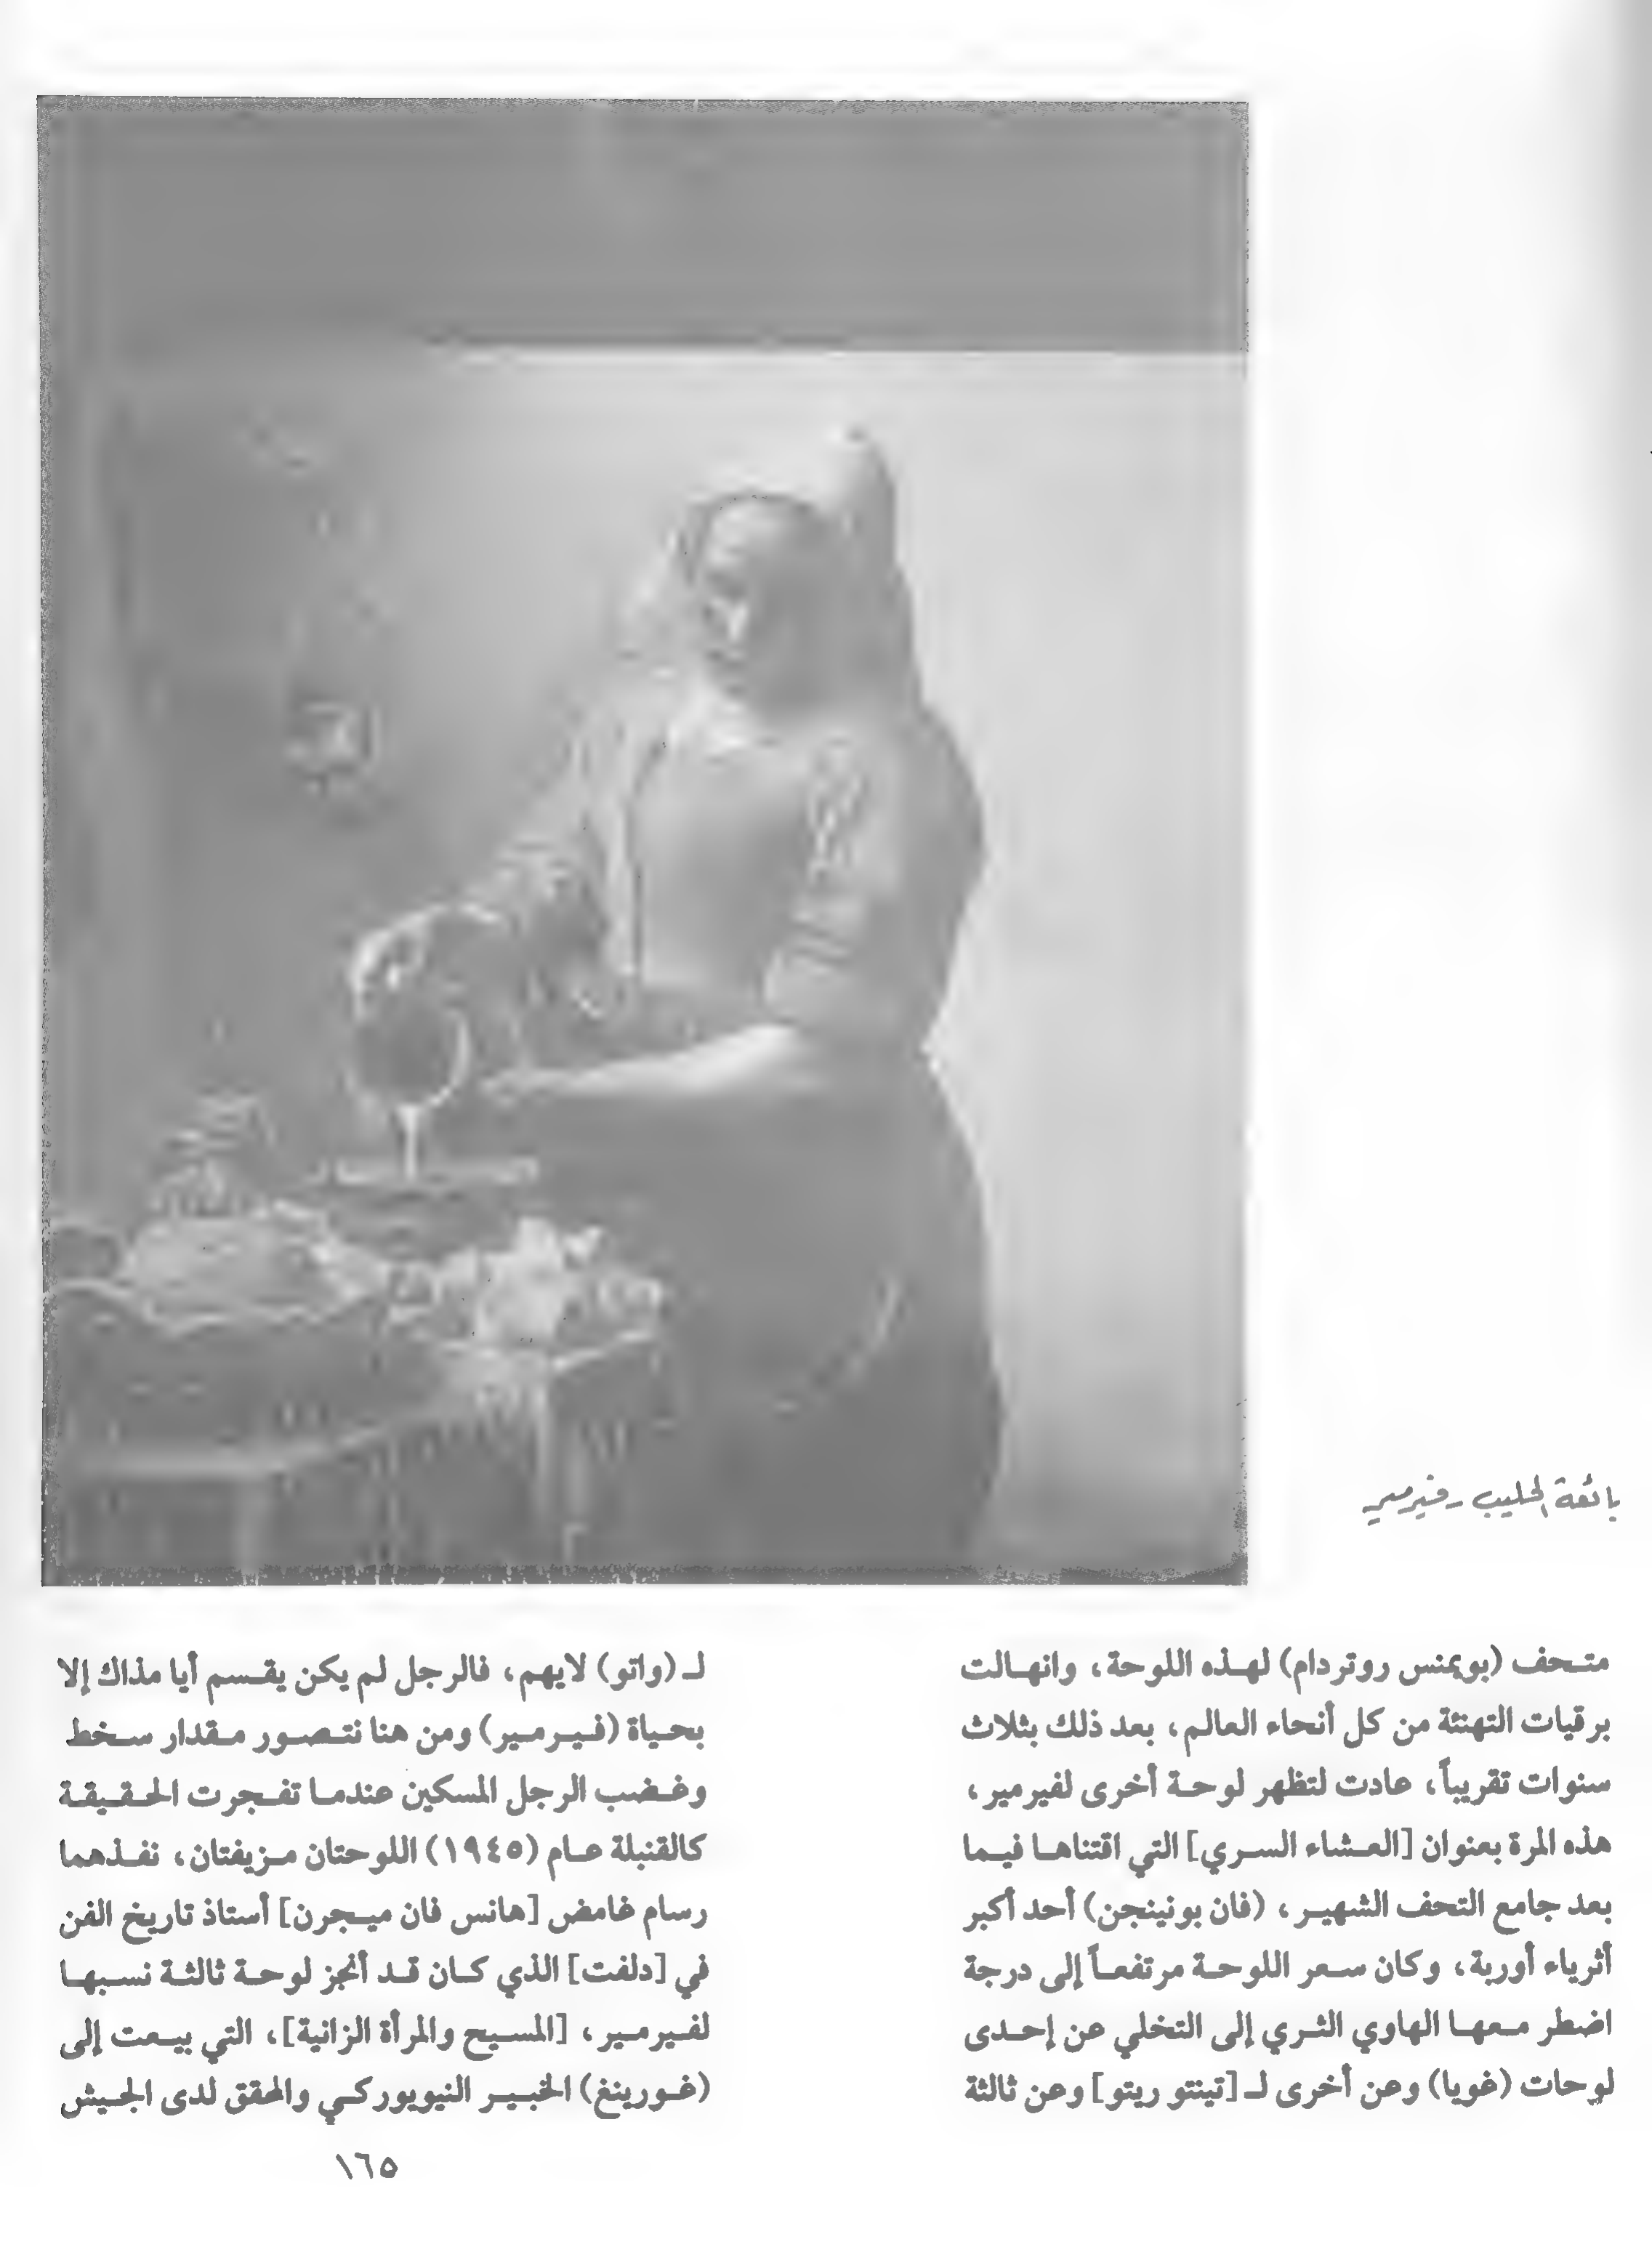 بائعة الحليب - فيرمير
متحف (بويمنس روتردام) لهذه اللوحة، وانهالت
برقيات التهنئة من كل أنحاء العالم، بعد ذلك بثلاث
سنوات تقريباً، عادت لتظهر لوحة أخرى لفيرمير،
هذه المرة بعنوان [العشاء السري] التي اقتناها فيما
بعد جامع التحف الشهير، (فان بونينجن) أحد أكبر
أثرياء أوربة، وكان سعر اللوحة مرتفعاً إلى درجة
اضطر معها الهاوي الثري إلى التخلي عن إحدى
لوحات (غويا) وعن أخرى لـ [تينتو ريتو] وعن ثالثة
لـ (واتو) لايهم، فالرجل لم يكن يقسم أيا مذاك إلا
بحياة (فيرمير) ومن هنا نتصور مقدار سخط
وغضب الرجل المسكين عندما تفجرت الحقيقة
كالقنبلة عام (١٩٤٥) اللوحتان مزيفتان، نفذهما
رسام غامض [هانس فان ميجرن] أستاذ تاريخ الفن
في [دلفت] الذي كان قد أنجز لوحة ثالثة نسبها
لفيرمير، [المسيح والمرأة الزانية]، التي بيعت إلى
(غورينغ) الخبير النيويوركي والمحقق لدى الجيش
١٦٥